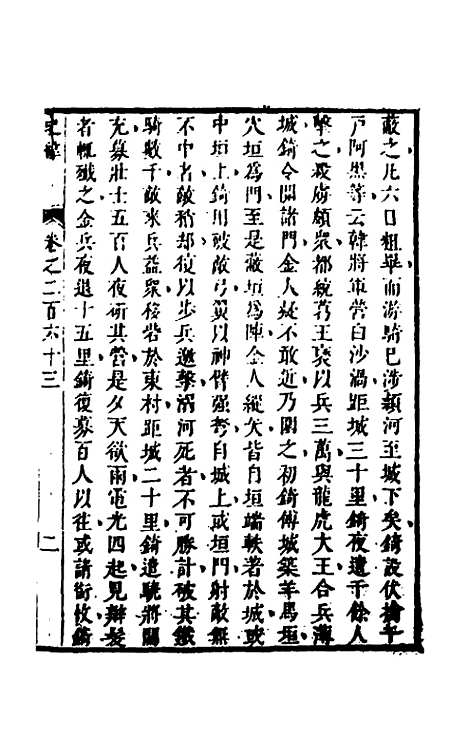 蔽之凡六日粗畢而游騎已涉潁河至城下矣錡設伏擒千
戶阿黑等云韓將軍營白沙渦距城三十里錡夜遣千餘人
擊之殺虜頗衆都統葛王褎以兵三萬與龍虎大王合兵薄
城錡令開諸門金人疑不敢近乃開之初錡傅城築羊馬垣
穴垣爲門至是蔽垣爲陣金人縱矢皆自垣端軼著於城或
中垣上錡用破敵弓翼以神臂强弩自城上或垣門射敵無
不中者敵稍却復以步兵邀擊溺河死者不可勝計破其鐵
騎數千敵來兵益衆移砦於東村距城二十里錡遣驍將閻
充募壯士五百人夜斫其營是夕天欲雨電光四起見辮髮
者輒殲之金兵夜退十五里錡復募百人以往或請銜枚錡
卷之二百六十三
二